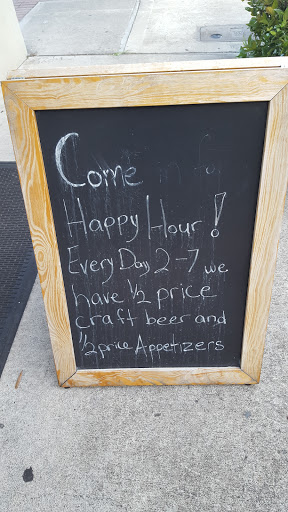 Come in for
Happy Hour!
Every Day 2-7 we
have 1/2 price
craft beer and
1/2 price Appetizers